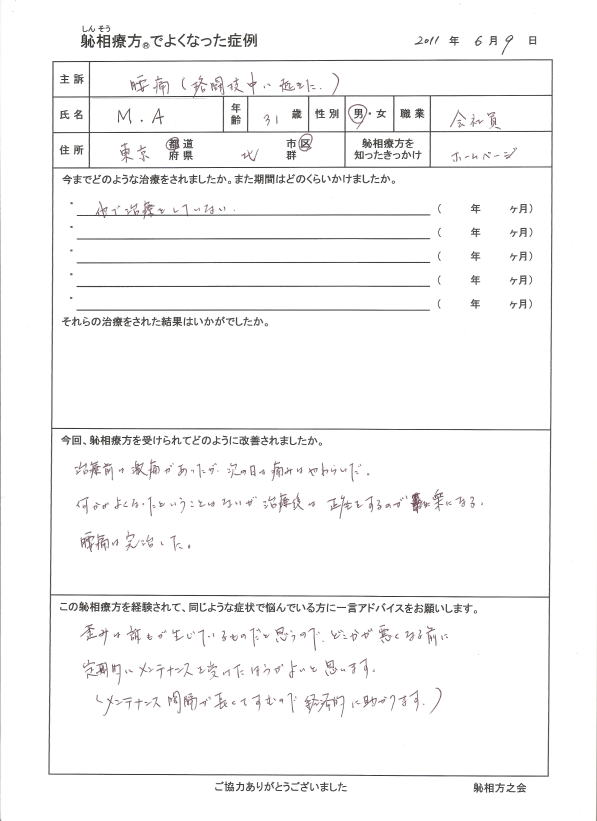 しんそう
躰相療方®でよくなった症例 2011 年 6 月 9 日
主訴 腰痛(格闘技中に起きた.)
氏名 M.A 年齢 31 歳 性別 男・女 職業 会社員
住所 東京 都道府県 北 市区群 躰相療方を知ったきっかけ ホームページ
今までどのような治療をされましたか。また期間はどのくらいかけましたか。
・ 他で治療をしていない. ( 年 ヶ月)
・ ( 年 ヶ月)
・ ( 年 ヶ月)
・ ( 年 ヶ月)
・ ( 年 ヶ月)
それらの治療をされた結果はいかがでしたか。
今回、躰相療方を受けられてどのように改善されましたか。
治療前は激痛があったが、次の日は痛みはやわらいだ。
何かがよくなったということはないが治療後は正座をするのが楽になる.
腰痛は完治した。
この躰相療方を経験されて、同じような症状で悩んでいる方に一言アドバイスをお願いします。
歪みは誰もが生じているものだと思うので、どこかが悪くなる前に
定期的にメンテナンスを受けたほうがよいと思います。
(メンテナンス間隔が長くてすむので経済的に助かります.)
ご協力ありがとうございました 躰相方之会